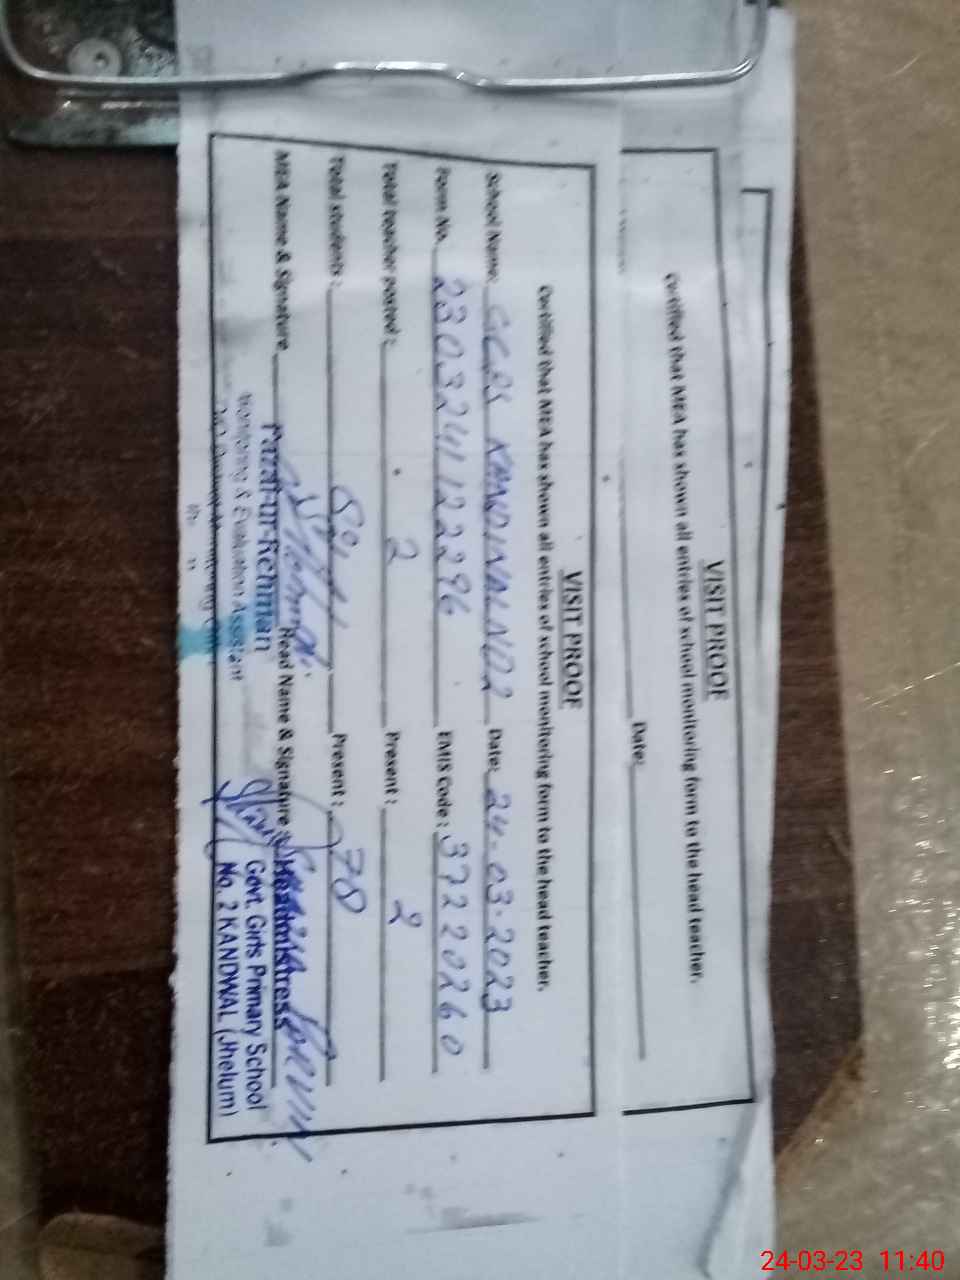 VISIT PROOF
Certified that MEA has shown all entries of school monitoring form to the head teacher.
Date:
VISIT PROOF
Certified that MEA has shown all entries of school monitoring form to the head teacher.
School Name: GGPS KANDWAL NO2 Date: 24-03-2023
Form No. 23032411 22296 EMIS Code: 37220260
Total teacher posted: 2 Present: 2
Total students: Present: 78
MEA Name & Signature Head Name & Signature:
-ur-Rehman
Monitoring & Evaluation Assistant
Headmistress
Govt. Girls Primary School
No. 2 KANDWAL (Jhelum)
24-03-23 11:40